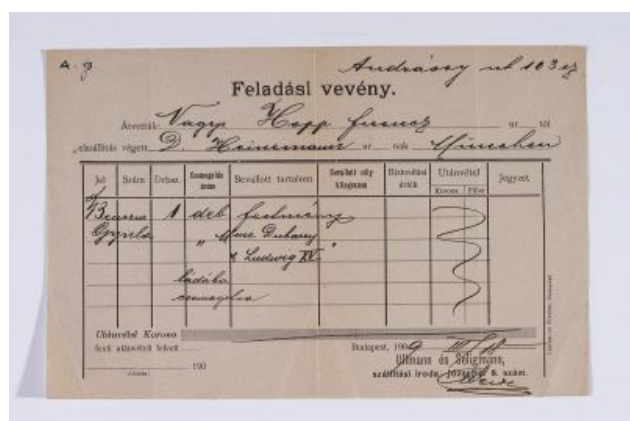 A. g.
Andrássy ut 103 sz
Feladási vevény.
Átvettük Nagys Hopp Ferencz ur tól
elszállítás végett D. Heinemann ur nak München
Jel Szám Drbsz. Csomagolás neme Bevallott tartalom Bevallott súly kilogramm Biztosítási érték Utánvétel Jegyzet
Korona Fillér
Benczur 1 drb festmény
Gyula " Mme Dubarry
& Ludwig XV. "
ládába
csomagolva
Utánvétel Korona
fenti utánvételt felvett
Budapest, 1909
190
Ullmann és Seligmann,
szállítási iroda, József-tér 8. szám.